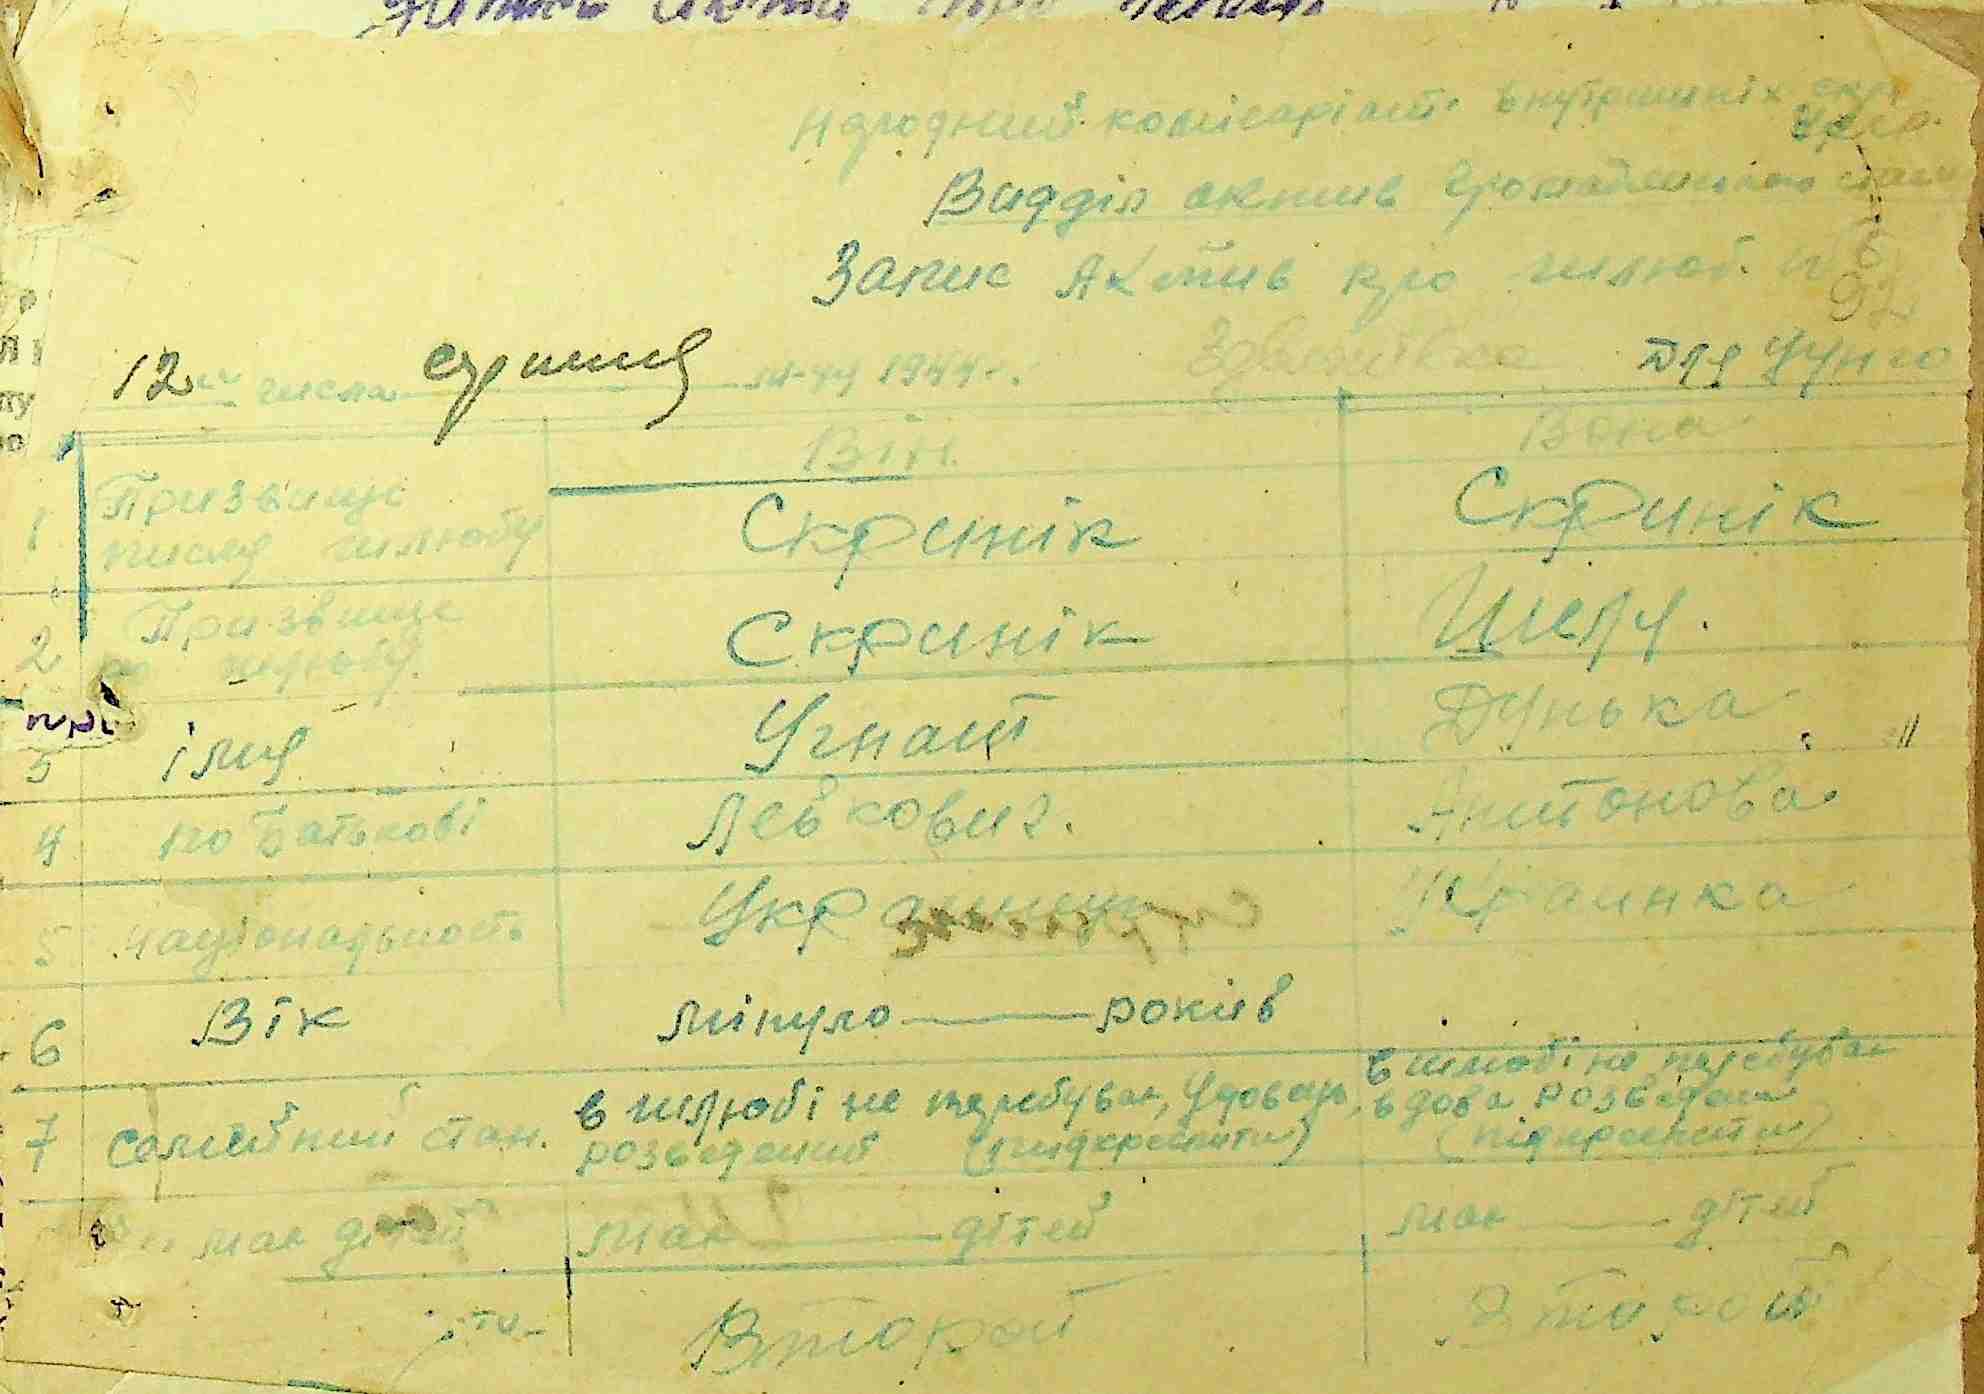 Народний комісаріат внутрішніх
Виддiл актив громадянсько
Запис Актив про шлюб. №
12 числа 1944 г. Для
Він. Вона
1 Призвище після шлюбу Скринік Скринік
2 Призвище шлюбу. Скринік
5 імя Угнат Дунька "
4 по батькові Левкович. Антонова
5 національность Украинка
6 Вік мінуло — років
7 Семейний стан. в шлюбі не перебував, Удовець, розведений (пидкреслити) в шлюбі не перебува вдова розведена (підкреслити)
мае дітей мае — дітей мае — дітей
Второй Второй